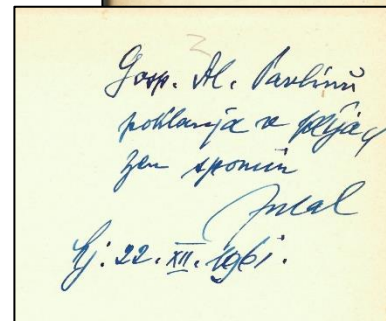 Gosp. Al. Pavlinu
poklanja v prija-
zen spomin
Lj. 22. XII. 1961.